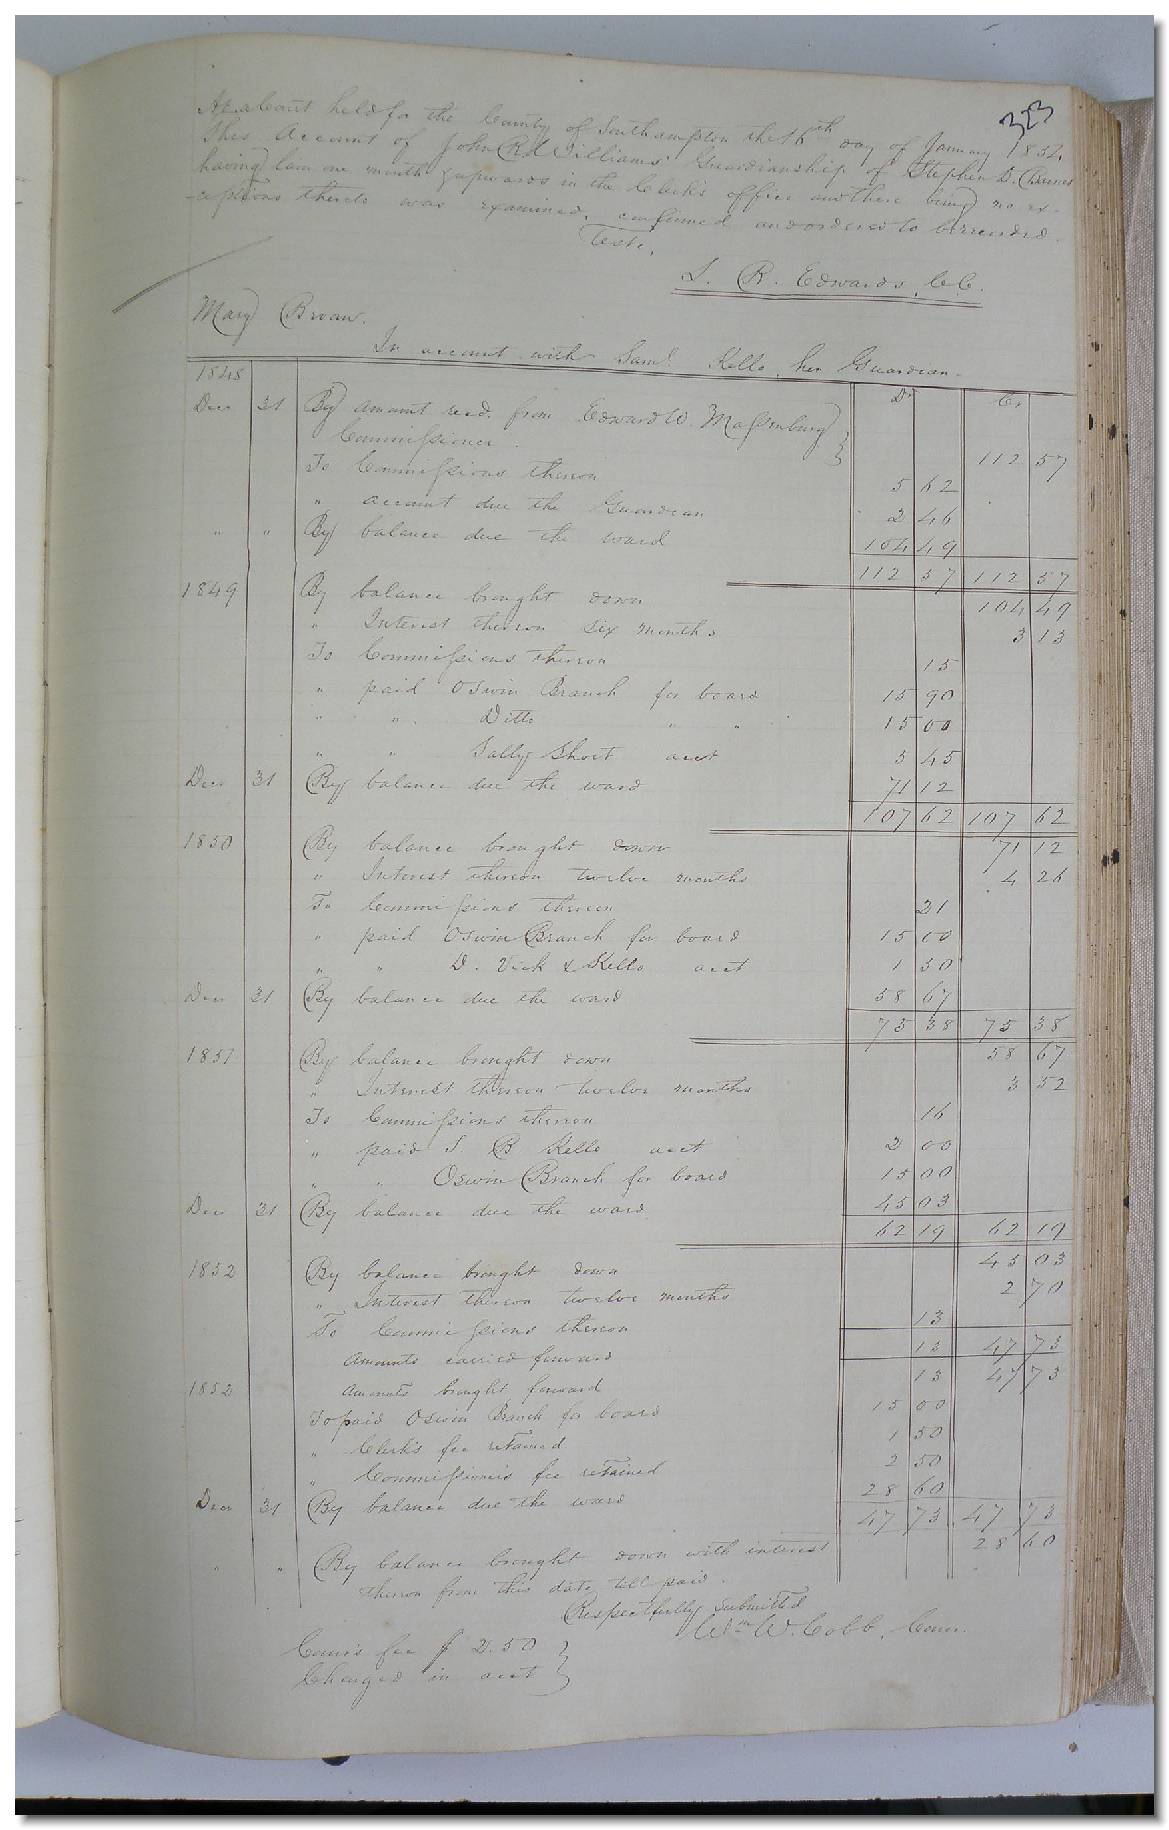 323
At a Court held for the County of Southampton the 16th day of January 1852.
This Account of John Rd Williams' Guardianship of Stephen D. Barnes
having lain one month & upwards in the Clerk's office and there being no ex-
ceptions thereto was examined, confirmed and ordered to be recorded.
Teste,
L. R. Edwards, C.C.
Mary Brown.
In account with Saml. Kello, her Guardian.
1848 Dr Cr
Decr 31 By amount recd. from Edward W. Massenburg
Commissioner 112 57
To Commissions thereon 5 62
" account due the Guardian 2 46
" " By balance due the ward 104 49
112 57 112 57
1849 By balance brought down 104 49
" Interest thereon six months 3 13
To Commissions thereon 15
" paid Oswin Branch for board 15 90
" " Ditto " " 15 00
" " Sally Short acct 5 45
Decr 31 By balance due the ward 71 12
107 62 107 62
1850 By balance brought down 71 12
" Interest thereon twelve months 4 26
To Commissions thereon 21
" paid Oswin Branch for board 15 00
" " D. Vick & Kello acct 1 50
Decr 31 By balance due the ward 58 67
75 38 75 38
1851 By balance brought down 58 67
" Interest thereon twelve months 3 52
To Commissions thereon 16
" paid S. B Kello acct 2 00
" " Oswin Branch for board 15 00
Decr 31 By balance due the ward 45 03
62 19 62 19
1852 By balance brought down 45 03
" Interest thereon twelve months 2 70
To Commissions thereon 13
Amounts carried forward 13 47 73
1852 Amounts brought forward 13 47 73
To paid Oswin Branch for board 15 00
" Clerk's fee retained 1 50
" Commissioner's fee retained 2 50
Decr 31 By balance due the ward 28 60
47 73 47 73
" " By balance brought down with interest 28 60
thereon from this date till paid.
Respectfully Submitted
Wm W. Cobb, Comr.
Com's fee $ 2.50
Charged in acct